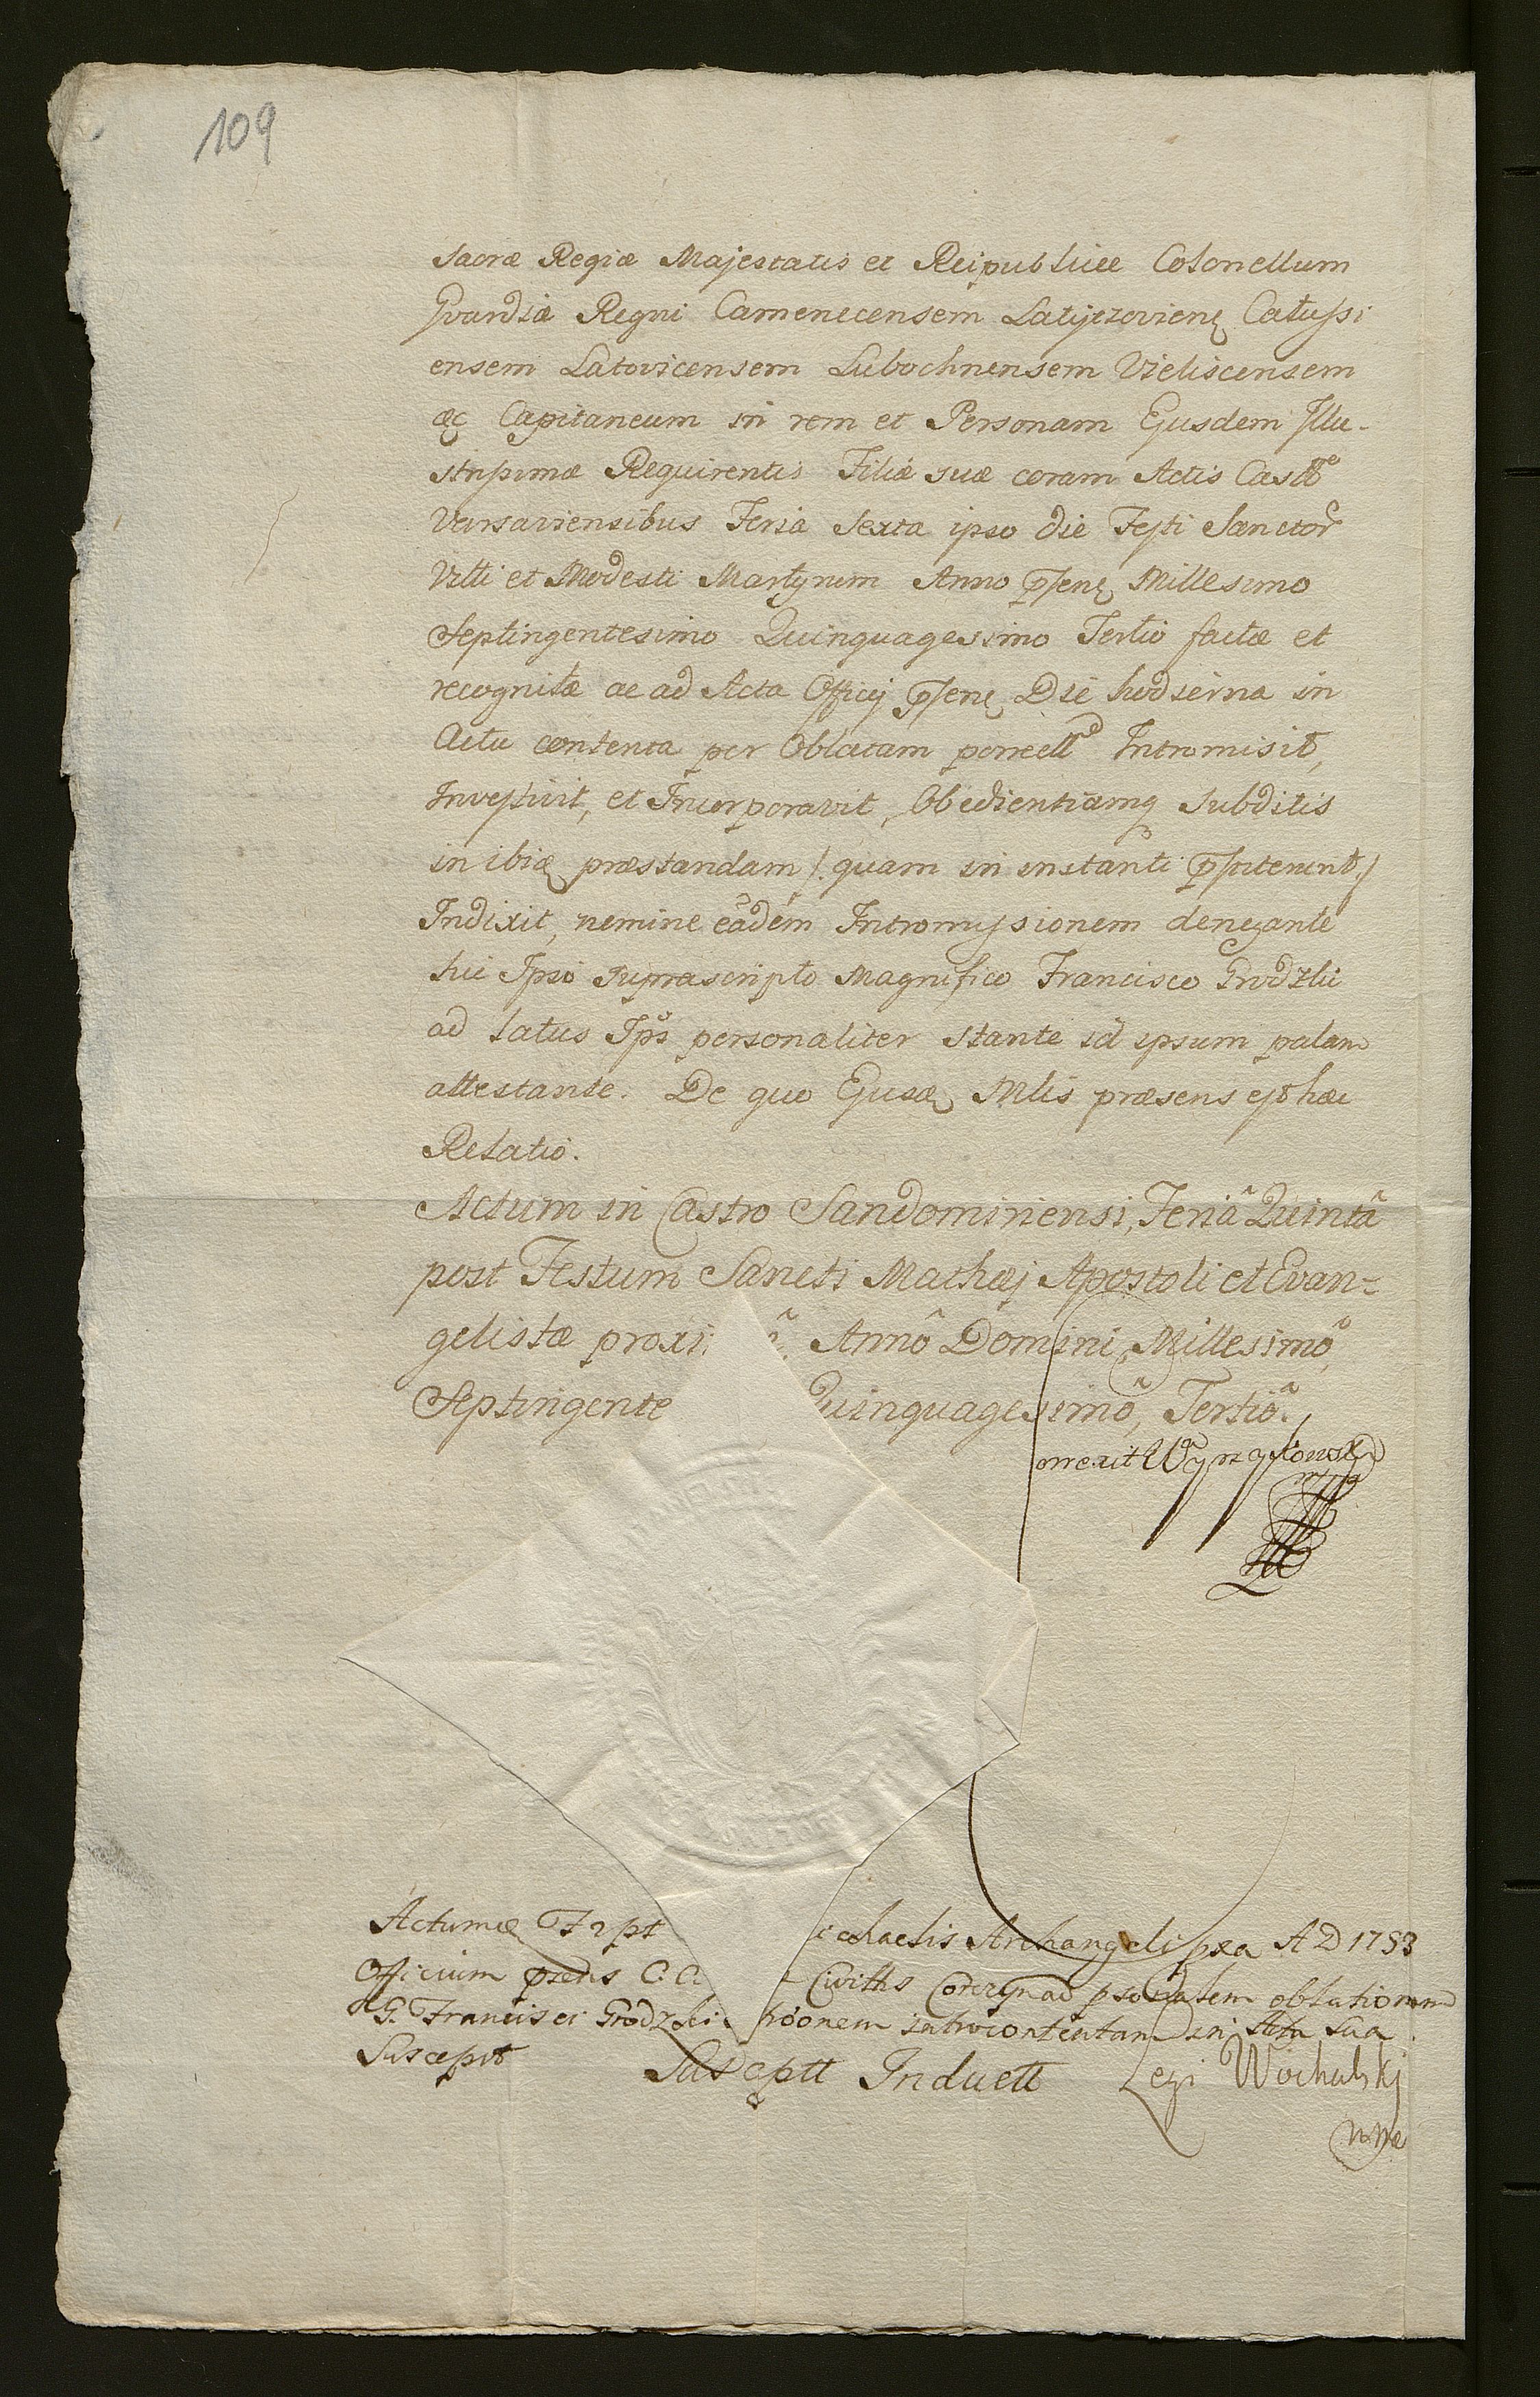 109
Sacræ Regiæ Majestatis et Reipublicæ Colonellum
Gvardiæ Regni Camenecensem Latyczoviens Catussi
ensem Latovicensem Lubochnensem Vieliscensem
Capitaneum in rem et Personam Ejusdem Illu-
strissimæ Requirentis Filiæ suæ coram Actis Castr
Varsaviensibus Feria Sexta ipso die Festi Sanctor
Vitti et Modesti Martyrum Anno psens Millesimo
Septingentesimo Quinquagesimo Tertio factæ et
recognitæ ac ad Acta Officij psens Die hodierna in
Actu contenta per Oblatam porrect Intromisit,
Investivit, et Incorporavit, Obedientiamq subditis
in ibiq præstandam /. quam in instanti pstiterunt ./
Indixit, nemine eadem Intromissionem denegante
sui Ipso suprascripto Magnifico Francisco Grodzki
ad latus Ips personaliter stante id ipsum palam
attestante. De quo Ejusd Mlis præsens est hæc
Relatio.
Actum in Castro Sandomiriensi, Feriâ Quintâ
post Festum Sancti Mathæj Apostoli et Evan=
gelistæ proxi Annô Domini Millesimô,
Septingente Quinquagesimô, Tertiô.
orrexit
Actum F 2 pt chaelis Archangeli pxa A D 1753
Officium psens C. C. ad oblationem
G. Francisci Grodzki introcontentam in Acta Sua
Suscepit Susceptt Induett Legi Wochulskj
mpp